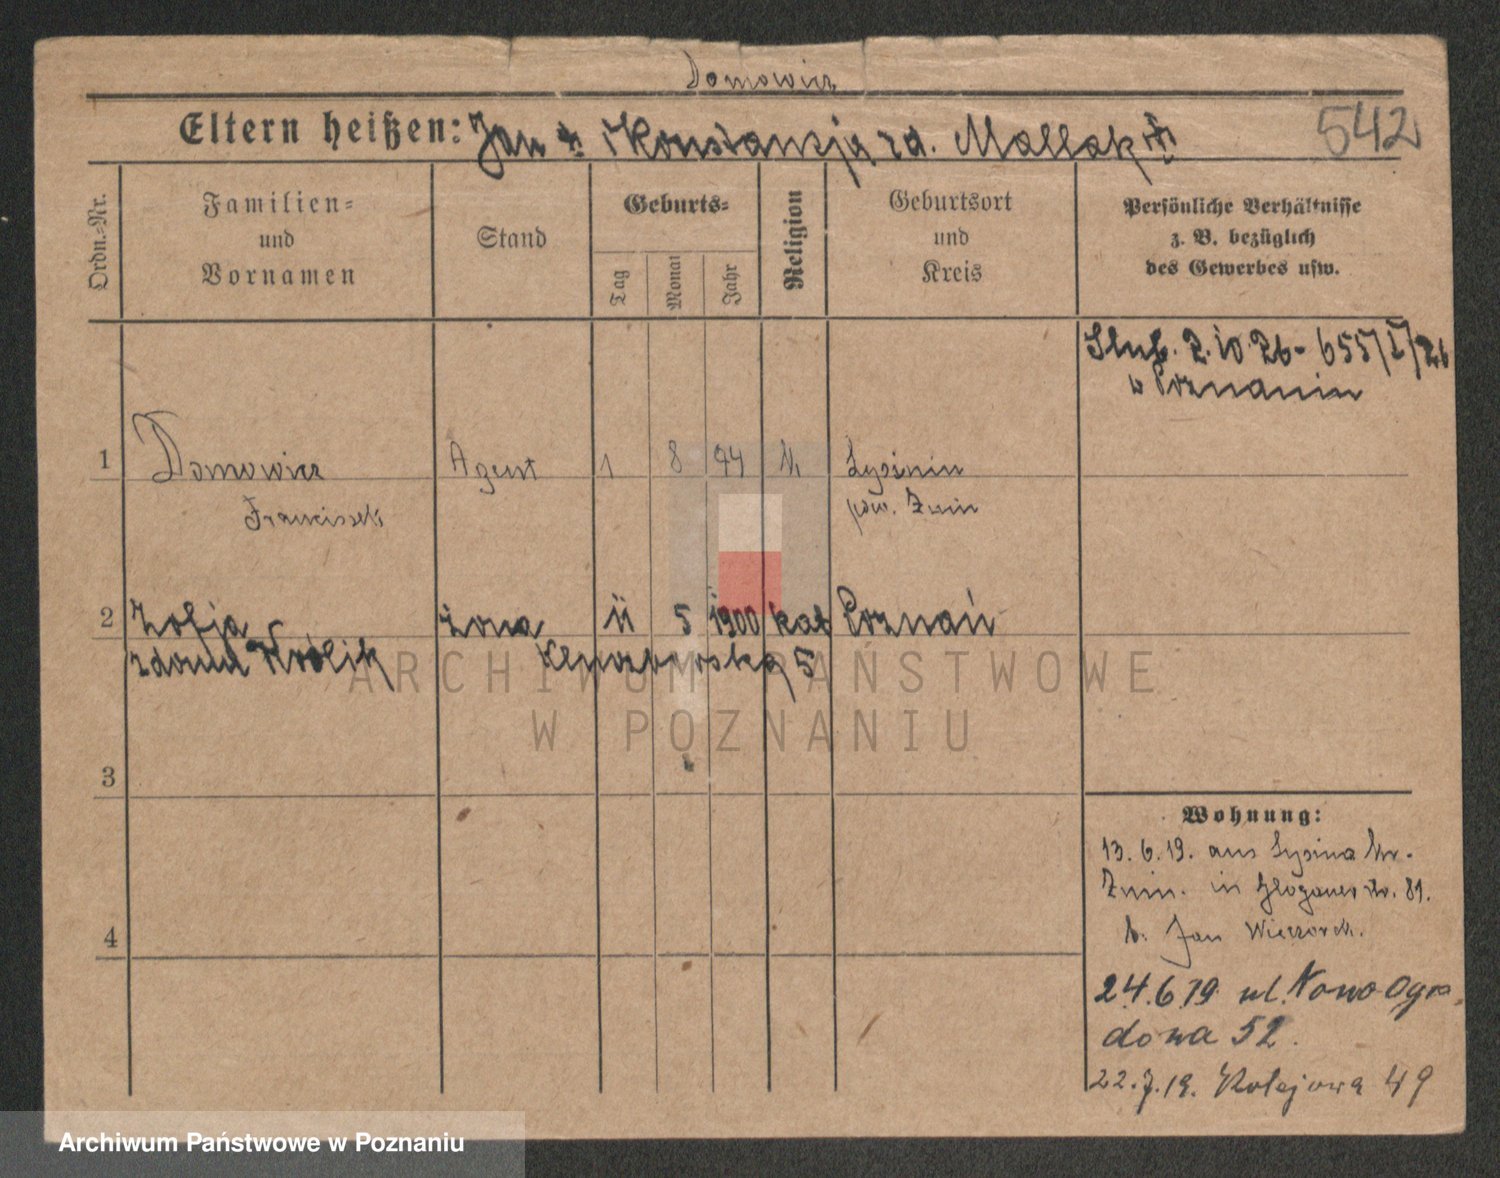 Domowicz
Eltern heißen: Jan + i Konstancja zd. Mallak
542
Ordn.-Nr.
Familien-
und
Vornamen
Stand
Geburts-
Tag
Monat
Jahr
Religion
Geburtsort
und
Kreis
Persönliche Verhältnisse
z. B. bezüglich
des Gewerbes usw.
Slub. 2.10.26 - 655/I/26
w Poznaniu
1 Domowicz Agent 1 8 94 k. Lysinin
Franciszek pow. Znin
2 Zofja żona 11 5 1900 kat Poznań
zdomu Królik
ARCHIWUM PAŃSTWOWE
W POZNANIU
3
4
Wohnung:
13.6.19. aus Lysina Kr.
Znin. in Glogauer str. 81.
b. Jan Wieczorek.
24.6.19. ul. Nowo Ogro
dowa 52.
22.7.19. Kolejowa 49
Archiwum Państwowe w Poznaniu